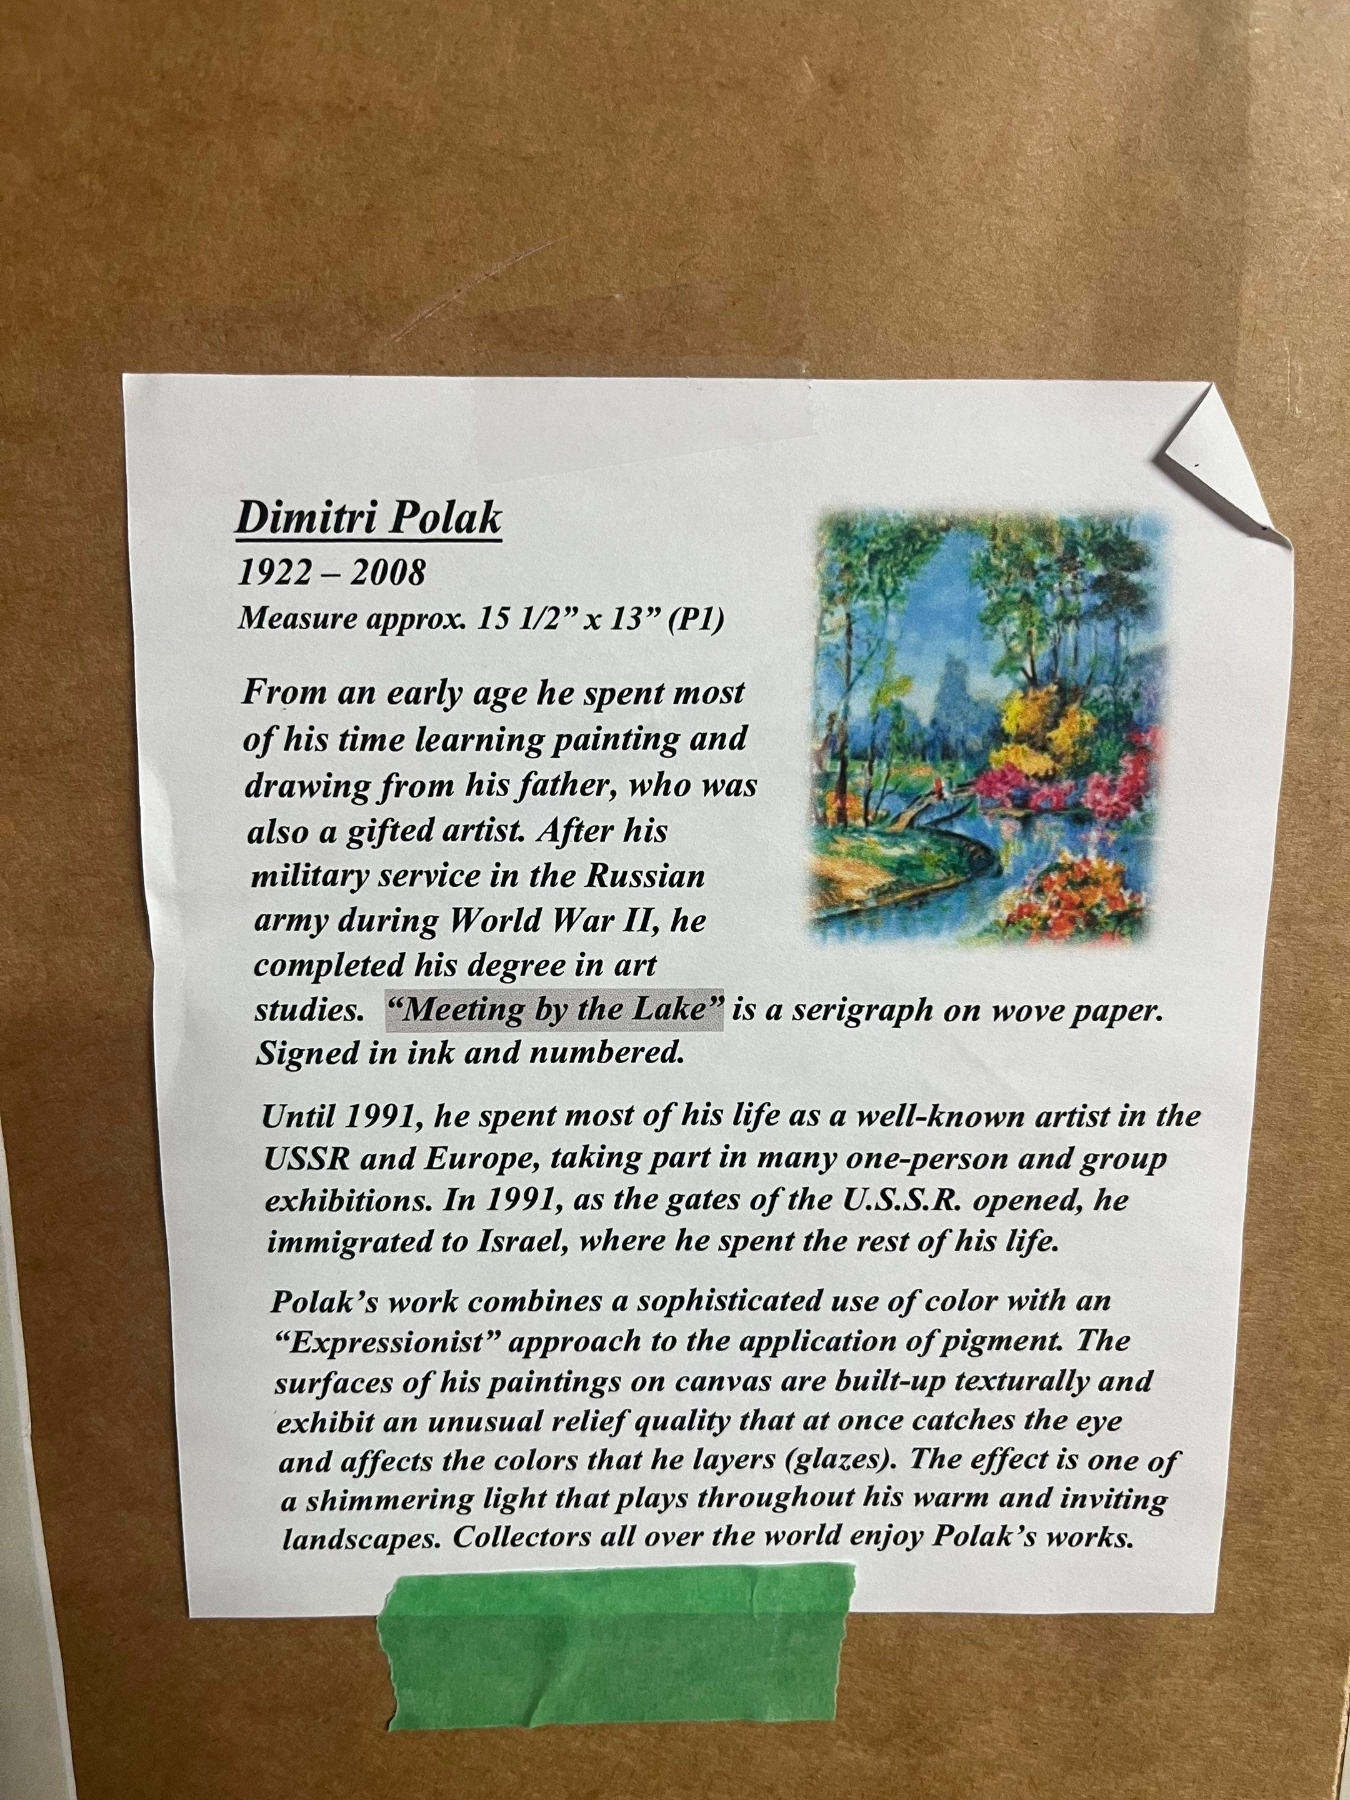 Dimitri Polak
1922 – 2008
Measure approx. 15 1/2” x 13” (P1)
From an early age he spent most
of his time learning painting and
drawing from his father, who was
also a gifted artist. After his
military service in the Russian
army during World War II, he
completed his degree in art
studies. “Meeting by the Lake” is a serigraph on wove paper.
Signed in ink and numbered.
Until 1991, he spent most of his life as a well-known artist in the
USSR and Europe, taking part in many one-person and group
exhibitions. In 1991, as the gates of the U.S.S.R. opened, he
immigrated to Israel, where he spent the rest of his life.
Polak’s work combines a sophisticated use of color with an
“Expressionist” approach to the application of pigment. The
surfaces of his paintings on canvas are built-up texturally and
exhibit an unusual relief quality that at once catches the eye
and affects the colors that he layers (glazes). The effect is one of
a shimmering light that plays throughout his warm and inviting
landscapes. Collectors all over the world enjoy Polak’s works.